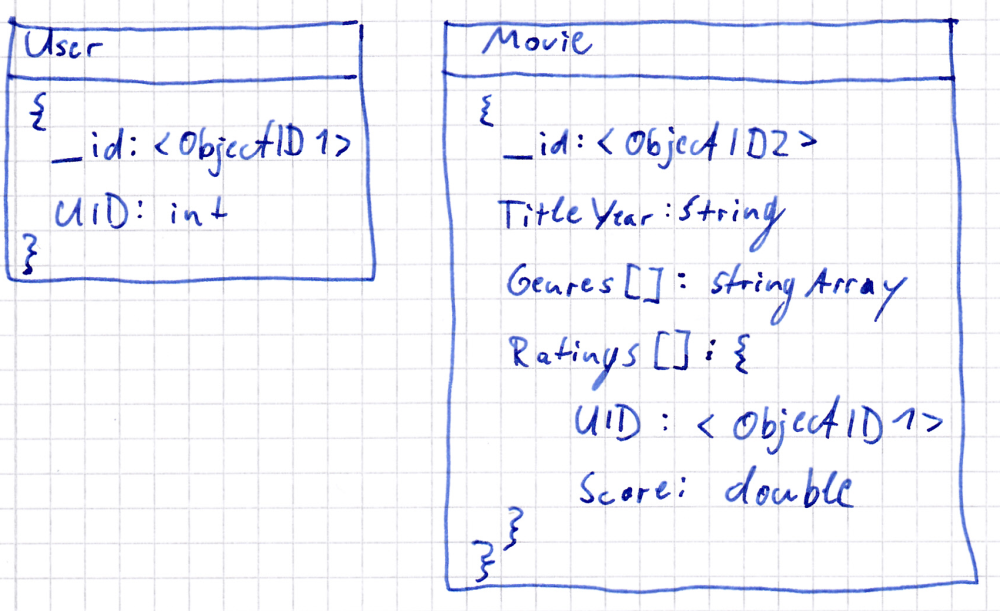 User
{
_id: <ObjectID1>
UID: int
}
Movie
{
_id: <ObjectID2>
TitleYear: String
Genres[]: stringArray
Ratings[]: {
UID: <ObjectID1>
Score: double
}
}